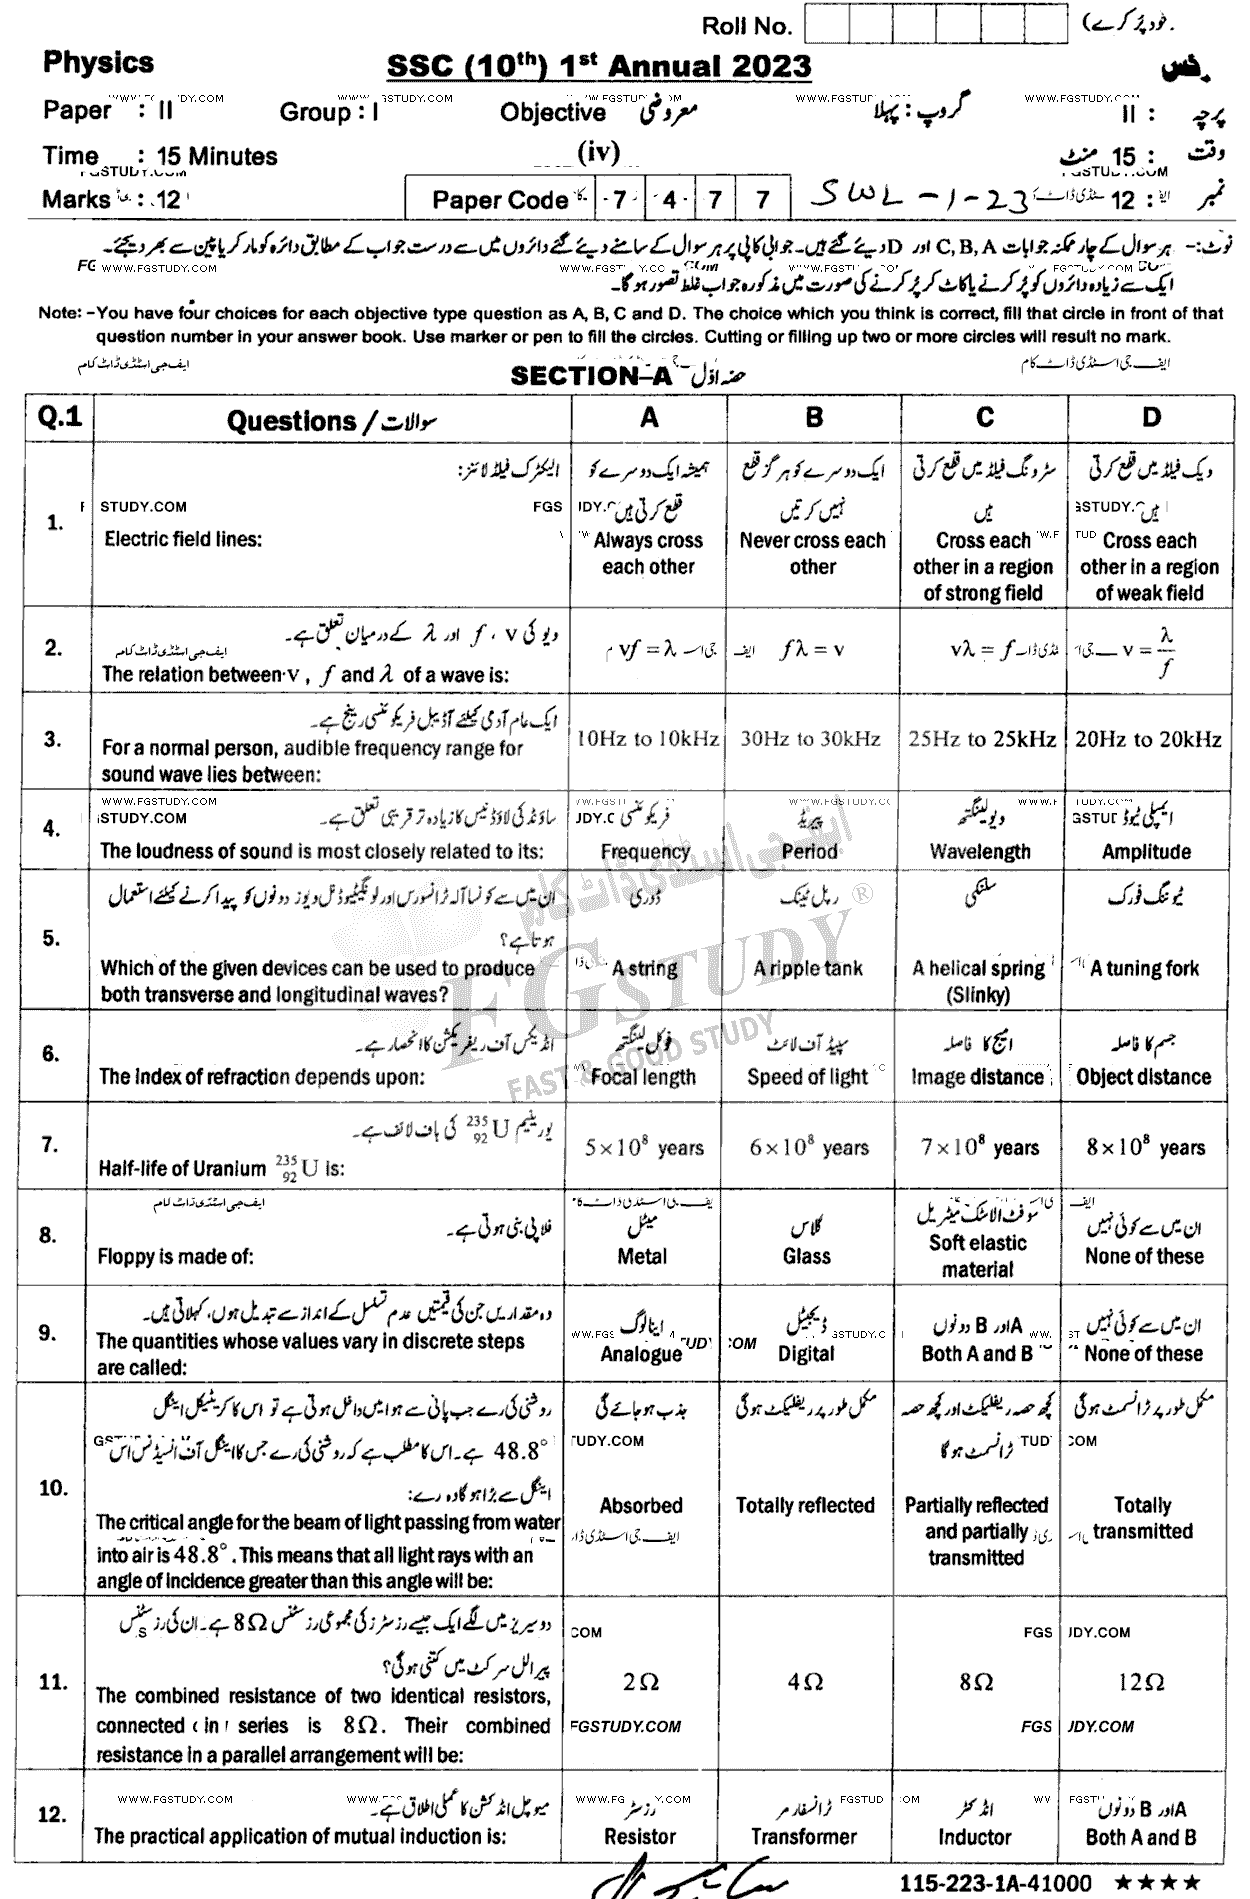 Roll No. (خود پُر کرے۔
Physics SSC (10th) 1st Annual 2023
WWW.FGSTUDY.COM
Paper : II Group : I Objective معروضی گروپ : پہلا II : پرچہ
Time : 15 Minutes (iv) 15 منٹ : وقت
FGSTUDY.COM
Marks : 12 Paper Code 7 4 7 7 SWL-1-23 12 : نمبر
نوٹ:- ہر سوال کے چار ممکنہ جوابات C, B, A اور D دیئے گئے ہیں۔ جوابی کاپی پر ہر سوال کے سامنے دیئے گئے دائروں میں سے درست جواب کے مطابق دائرہ کو مارکر یا پین سے بھر دیجئے۔
WWW.FGSTUDY.COM
ایک سے زیادہ دائروں کو پُر کرنے یا کاٹ کر پُر کرنے کی صورت میں مذکورہ جواب غلط تصور ہو گا۔
Note: -You have four choices for each objective type question as A, B, C and D. The choice which you think is correct, fill that circle in front of that
question number in your answer book. Use marker or pen to fill the circles. Cutting or filling up two or more circles will result no mark.
ایف جی اسٹڈی ڈاٹ کام
SECTION-A حصہ اوّل
Q.1 Questions / سوالات A B C D
1. الیکٹرک فیلڈ لائنز:
Electric field lines:
ہمیشہ ایک دوسرے کو
قطع کرتی ہیں
Always cross
each other
ایک دوسرے کو ہرگز قطع
نہیں کرتیں
Never cross each
other
سٹرونگ فیلڈ میں قطع کرتی
ہیں
Cross each
other in a region
of strong field
ویک فیلڈ میں قطع کرتی
ہیں
Cross each
other in a region
of weak field
2. ویو کی v ، f اور λ کے درمیان تعلق ہے۔
The relation between v , f and λ of a wave is:
vf = λ fλ = v vλ = f v = λ/f
3. ایک عام آدمی کیلئے آڈیبل فریکوئنسی رینج ہے۔
For a normal person, audible frequency range for
sound wave lies between:
10Hz to 10kHz 30Hz to 30kHz 25Hz to 25kHz 20Hz to 20kHz
WWW.FGSTUDY.COM
4. ساؤنڈ کی لاؤڈنیس کا زیادہ تر قریبی تعلق ہے۔
The loudness of sound is most closely related to its:
فریکوئنسی پیریڈ ویولینگتھ ایمپلی ٹیوڈ
Frequency Period Wavelength Amplitude
5. ان میں سے کونسا آلہ ٹرانسورس اور لونگیٹیوڈنل ویوز دونوں کو پیدا کرنے کیلئے استعمال
ہوتا ہے؟
Which of the given devices can be used to produce
both transverse and longitudinal waves?
ڈوری رپل ٹینک سلنکی ٹیوننگ فورک
A string A ripple tank A helical spring
(Slinky)
A tuning fork
ایف جی اسٹڈی ڈاٹ کام
FGSTUDY ®
FAST & GOOD STUDY
6. انڈیکس آف ریفریکشن کا انحصار ہے۔
The Index of refraction depends upon:
فوکل لینگتھ سپیڈ آف لائٹ امیج کا فاصلہ جسم کا فاصلہ
Focal length Speed of light Image distance Object distance
7. یورینیم ²³⁵₉₂U کی ہاف لائف ہے۔
Half-life of Uranium ²³⁵₉₂U is:
5×10⁸ years 6×10⁸ years 7×10⁸ years 8×10⁸ years
8. فلاپی بنی ہوتی ہے۔
Floppy is made of:
میٹل گلاس سوفٹ الاسٹک میٹریل ان میں سے کوئی نہیں
Metal Glass Soft elastic
material
None of these
9. وہ مقداریں جن کی قیمتیں عدم تسلسل کے انداز سے تبدیل ہوں، کہلاتی ہیں۔
The quantities whose values vary in discrete steps
are called:
اینالوگ ڈیجیٹل A اور B دونوں ان میں سے کوئی نہیں
Analogue Digital Both A and B None of these
10. روشنی کی رے جب پانی سے ہوا میں داخل ہوتی ہے تو اس کا کریٹیکل اینگل
48.8° ہے۔ اس کا مطلب ہے کہ روشنی کی رے جس کا اینگل آف انسیڈنس اس
اینگل سے بڑا ہو گا وہ رے:
The critical angle for the beam of light passing from water
into air is 48.8°. This means that all light rays with an
angle of incidence greater than this angle will be:
جذب ہو جائے گی مکمل طور پر ریفلیکٹ ہو گی کچھ حصہ ریفلیکٹ اور کچھ حصہ
ٹرانسمٹ ہو گا
مکمل طور پر ٹرانسمٹ ہو گی
Absorbed Totally reflected Partially reflected
and partially
transmitted
Totally
transmitted
11. دو سیریز میں لگے ایک جیسے رزسٹرز کی مجموعی رزسٹنس 8Ω ہے۔ ان کی رزسٹنس
پیرالل سرکٹ میں کتنی ہو گی؟
The combined resistance of two identical resistors,
connected in series is 8Ω. Their combined
resistance in a parallel arrangement will be:
2Ω 4Ω 8Ω 12Ω
FGSTUDY.COM
12. WWW.FGSTUDY.COM
میوچل انڈکشن کا عملی اطلاق ہے۔
The practical application of mutual induction is:
رزسٹر ٹرانسفارمر انڈکٹر A اور B دونوں
Resistor Transformer Inductor Both A and B
115-223-1A-41000 ★★★★